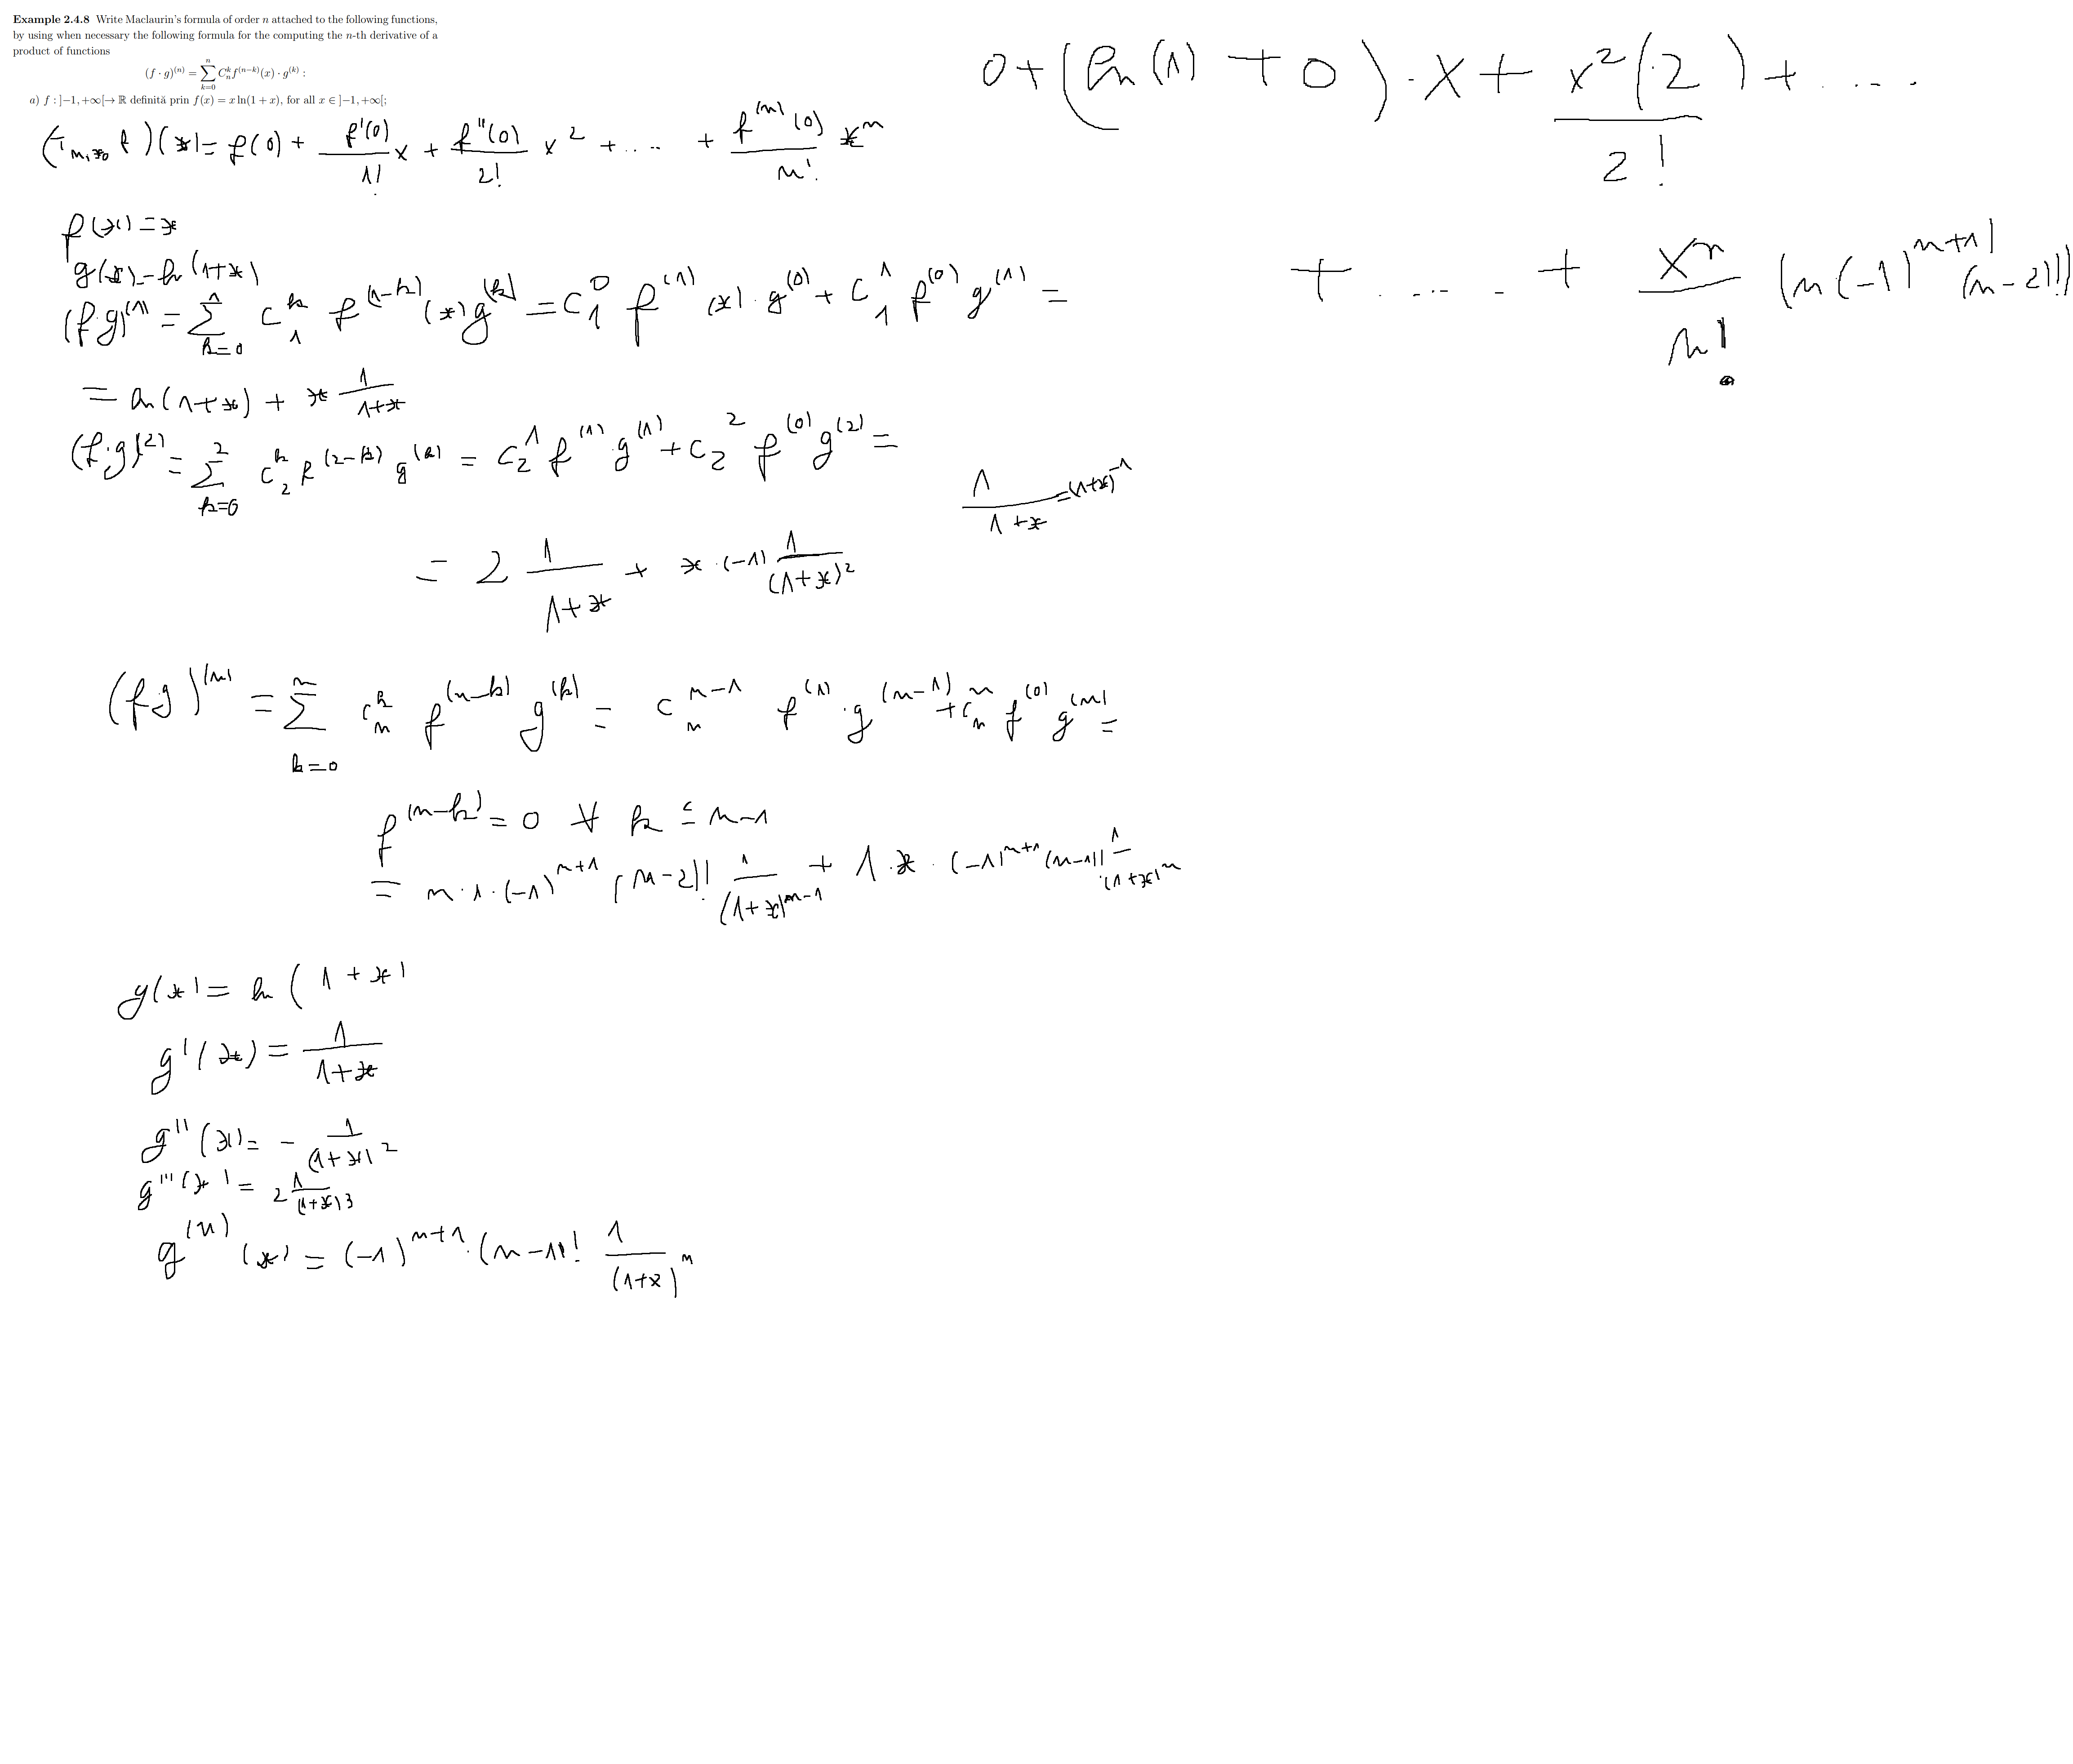 Example 2.4.8 Write Maclaurin's formula of order n attached to the following functions,
by using when necessary the following formula for the computing the n-th derivative of a
product of functions
(f · g)^(n) = ∑_{k=0}^{n} C_n^k f^(n−k)(x) · g^(k) :
a) f : ]−1, +∞[→ ℝ definită prin f(x) = x ln(1 + x), for all x ∈ ]−1, +∞[;
(T_{n,x_0} f)(x) = f(0) + f'(0)/1! x + f''(0)/2! x^2 + .... + f^(n)(0)/n! x^n
f(x) = x
g(x) = ln(1+x)
(f·g)^(1) = ∑_{k=0}^{1} C_1^k f^(1−k)(x) g^(k) = C_1^0 f^(1)(x) · g^(0) + C_1^1 f^(0) g^(1) =
= ln(1+x) + x 1/(1+x)
(f·g)^(2) = ∑_{k=0}^{2} C_2^k f^(2−k) g^(k) = C_2^1 f^(1) g^(1) + C_2^2 f^(0) g^(2) =
= 2 1/(1+x) + x · (−1) 1/(1+x)^2
1/(1+x) = (1+x)^−1
(fg)^(n) = ∑_{k=0}^{n} C_n^k f^(n−k) g^(k) = C_n^{n−1} f^(1) · g^(n−1) + C_n^n f^(0) g^(n) =
f^(n−k) = 0 ∀ k ≤ n−1
= n · 1 · (−1)^{n+1} (n−2)! 1/(1+x)^{n−1} + 1 · x · (−1)^{n+1} (n−1)! 1/(1+x)^n
g(x) = ln(1+x)
g'(x) = 1/(1+x)
g''(x) = − 1/(1+x)^2
g'''(x) = 2 1/(1+x)^3
g^(n)(x) = (−1)^{n+1} · (n−1)! 1/(1+x)^n
0 + (ln(1) + 0) · x + x^2(2)/2! + ....
+ .... + x^n/n! (n(−1)^{n+1} (n−2)!)